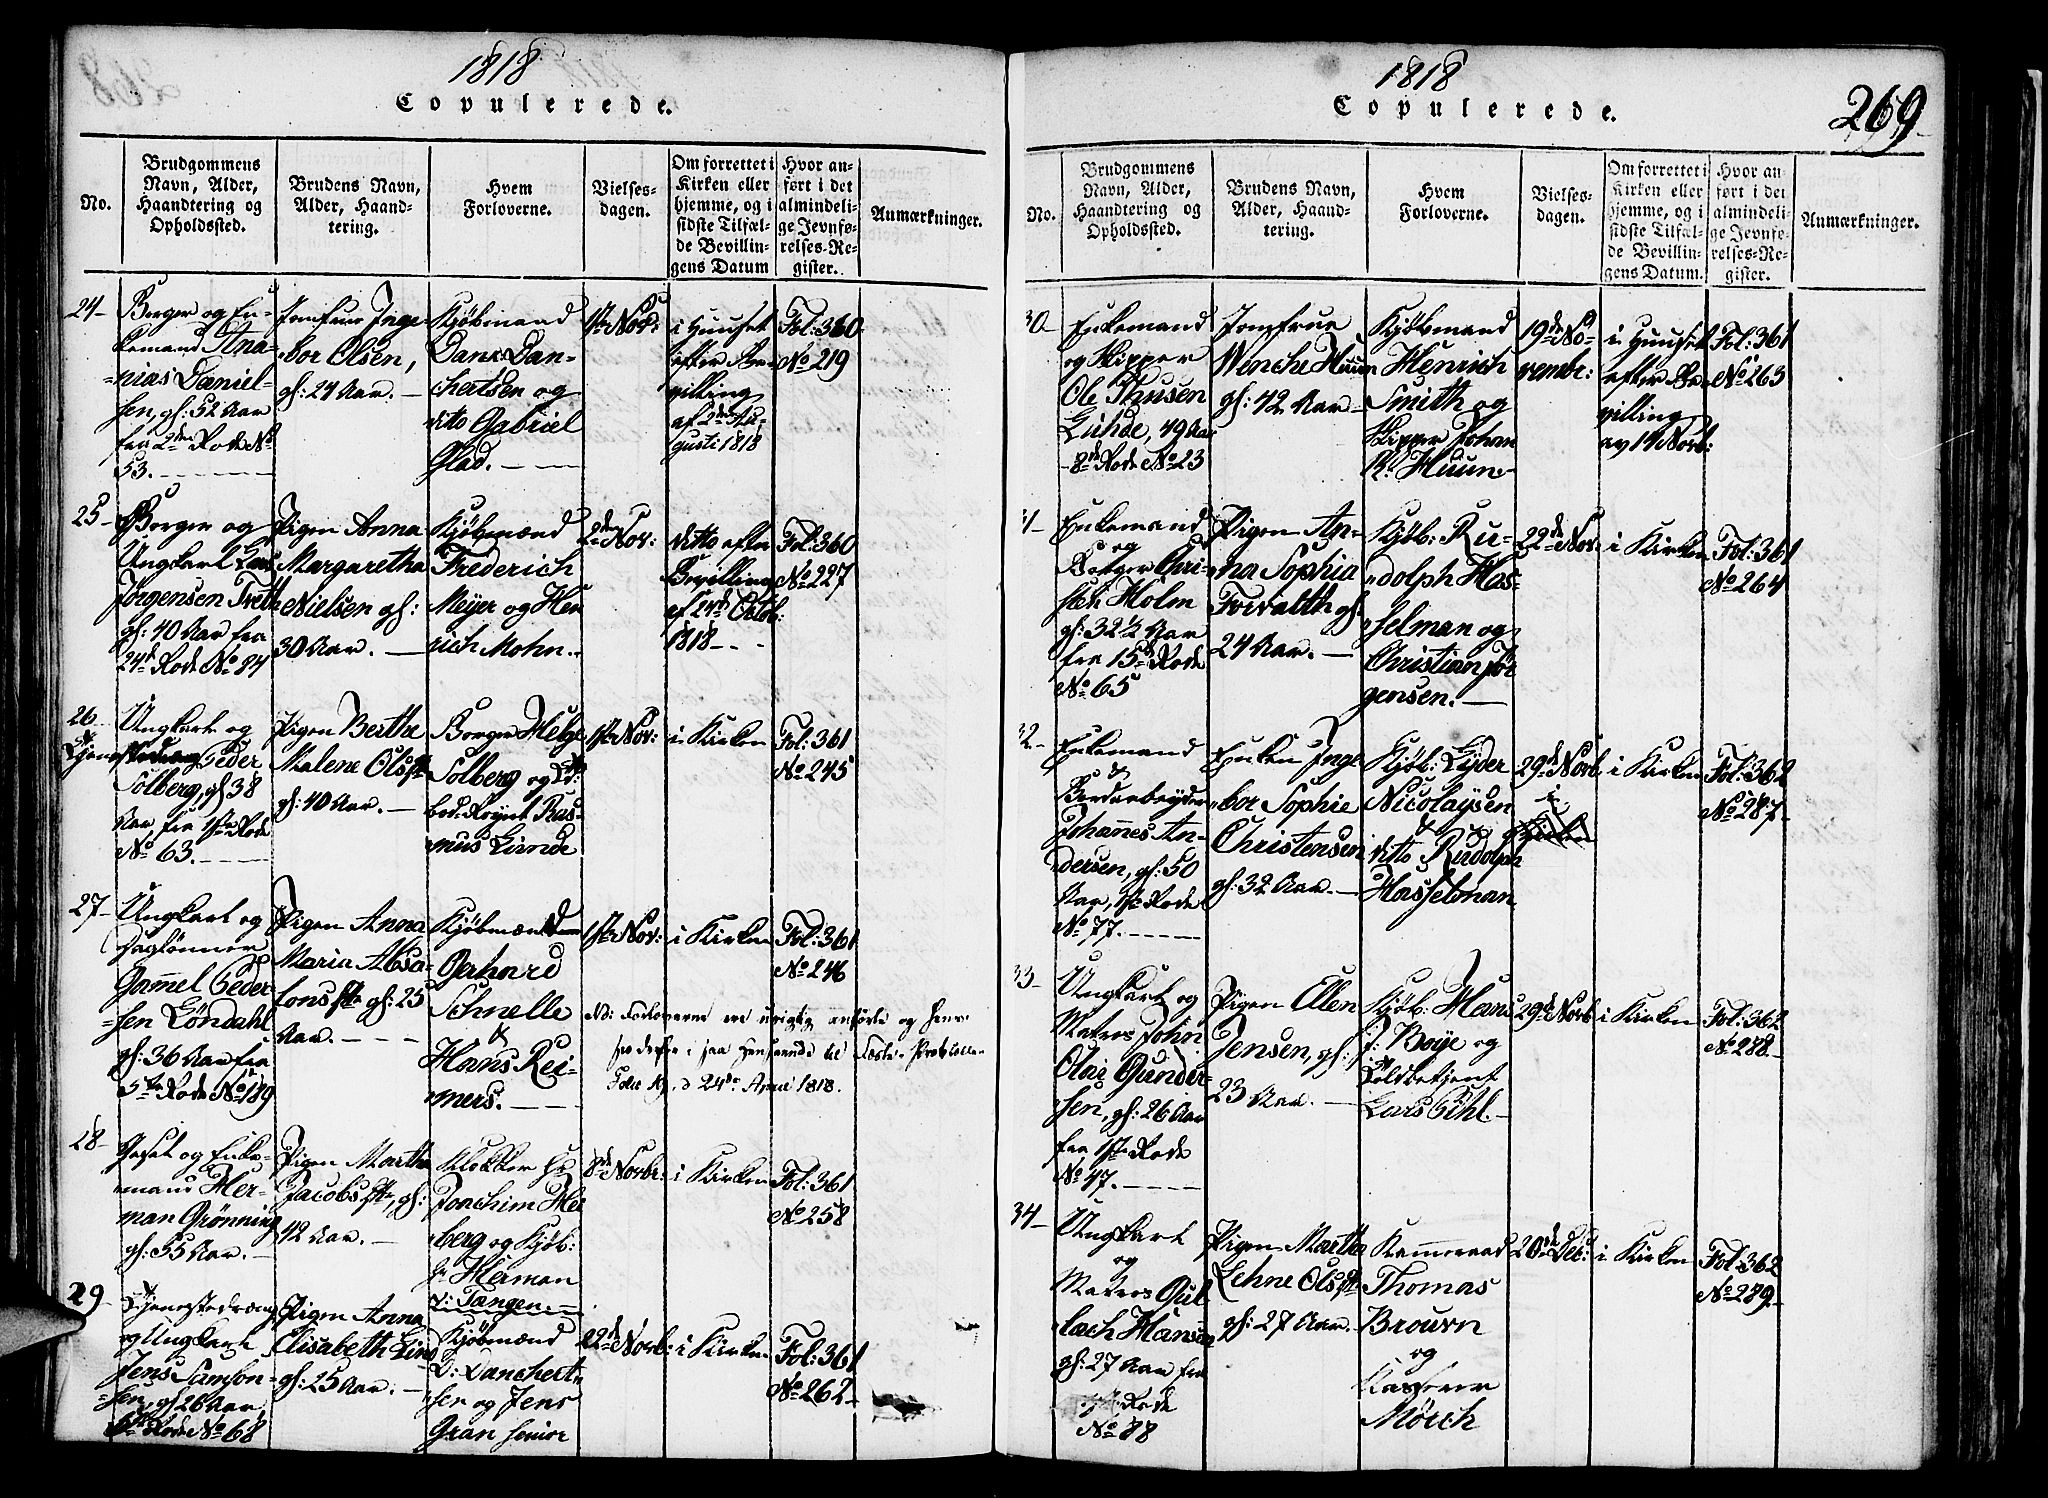 1818
Copulerede.
No.
Brudgommens
Navn, Alder,
Haandtering og
Opholdssted.
Brudens Navn,
Alder, Haand-
tering.
Hvem
Forloverne.
Vielses-
dagen.
Om forrettet i
Kirken eller
hjemme, og i
sidste Tilfæl-
de Bevillin-
gens Datum
Hvor an-
ført i det
almindeli-
ge Jevnfø-
relses-Re-
gister.
Anmærkninger.
24
Borger og En-
kemand Ana-
nias Daniel-
sen, gl: 52 Aar
fra 2den Rode No
53.
Jomfrue Inge
bor Olsen,
gl: 24 Aar.
Kjøbmænd
Danc Dan-
chertsen og
ditto Gabriel
Glad.
1ste Nov:
i Huuset
efter Be-
villing
af 2den Au-
gusti 1818
Fol: 360
No 219
25
Borger og
Ungkarl Lars
Jørgensen Treth
gl: 40 Aar fra
24de Rode No 84
Pigen Anna
Margaretha
Nielsen gl:
30 Aar.
Kjøbmænd
Frederich
Meyer og Hen
rich Mohn.
2den Nov:
ditto efter
Bevilling
af 24de Octob:
1818
Fol: 360
No 227
26
Ungkarl og
Tjenestedreng Peder
Solberg, gl 38
Aar, fra 1ste Rode
No 63.
Pigen Berthe
Malene Olsdtr
gl: 40 Aar.
Borger Helge
Solberg og
Rasmus Linde
1ste Nov:
i Kirken
Fol: 361
No 245
27
Ungkarl og
Daglønner
Gammel Peder
sen Løndahl
gl: 36 Aar fra
5te Rode No 189
Pigen Anna
Maria Absa-
lonsdtr gl: 25
Aar.
Kjøbmænd
Gerhard
Schnelle
&
Hans Rei-
mers.
1ste Nov:
i Kirken
Fol: 361
No 246
NB: Forloverne ere urigtig anførte og
Folio 24de April 1818.
28
og Enke-
mand Her-
man Grønning
gl: 55 Aar.
Pigen Martha
Jacobsdtr, gl:
42 Aar.
Klokker Hr
Joachim Hei
berg og Kjøb:
Herman
v: Tangen
8de Novbr:
i Kirken
Fol: 361
No 258
29
Tjenestedreng
og Ungkarl
Jens Samson-
sen, gl 26 Aar
6te Rode No 68
Pigen Anna
Elisabeth Lind
gl: 25 Aar.
Kjøbmænd
D: Danchert
sen og Jens
Gran senior
22de Novb:
i Kirken
Fol: 361
No 262
1818
Copulerede.
269
No.
Brudgommens
Navn, Alder,
Haandtering og
Opholdssted.
Brudens Navn,
Alder, Haand-
tering.
Hvem
Forloverne.
Vielses-
dagen.
Om forrettet i
Kirken eller
hjemme, og i
sidste Tilfæl-
de Bevillin-
gens Datum.
Hvor an-
ført i det
almindeli-
ge Jevnfø-
relses-Re-
gister.
Anmærkninger.
30
Enkemand
og Skipper
Ole Thusen
Guhde, 49 Aar
8de Rode No 23
Jomfrue
Wenche Huun
gl: 42 Aar
Kjøbmand
Henrich
Smith og
Skipper Johan
Huun
19de No-
vembr:
i Huuset
efter Be-
villing
av 14 Novb:
Fol: 361
No 263
31
Enkemand
og
Borger Chri-
sten Holm
gl: 32 1/2 Aar
fra 15de Rode
No 65
Pigen An-
na Sophia
Forvalth gl:
24 Aar.
Kjøb: Ru-
dolph Has-
selman og
Christian Jør
gensen.
22de Nov:
i Kirken
Fol: 361
No 264
32
Enkemand
&
Bordarbeyder
Johannes An-
dersen, gl: 50
Aar, 1ste Rode
No 77.
Enken Inge
bor Sophie
Christensen
gl: 32 Aar.
Kjøb: Lyder
Nicolaysen
&
ditto Rudolph
Hasselman
29de Novb
i
Kirken
i Kirken
Fol: 362
No 287
33
Ungkarl og
Matros John
Olai Gunder-
sen, gl: 26 Aar
fra 1ste Rode
No 47.
Pigen Ellen
Jensen, gl:
23 Aar.
Kjøb: Hans
J: Boye og
Toldbetjent
Lars Pihl.
29de Novb
i Kirken
Fol: 362
No 288
34
Ungkarl
og
Matros Gul
lach Hansen
gl: 27 Aar fra
Rode
No 88
Pigen Marthe
Lehne Olsdtr
gl: 27 Aar.
Kammeraad
Thomas
Brouvn
og
Kasserer
Mörch
20de Deb:
i Kirken
Fol: 362
No 289